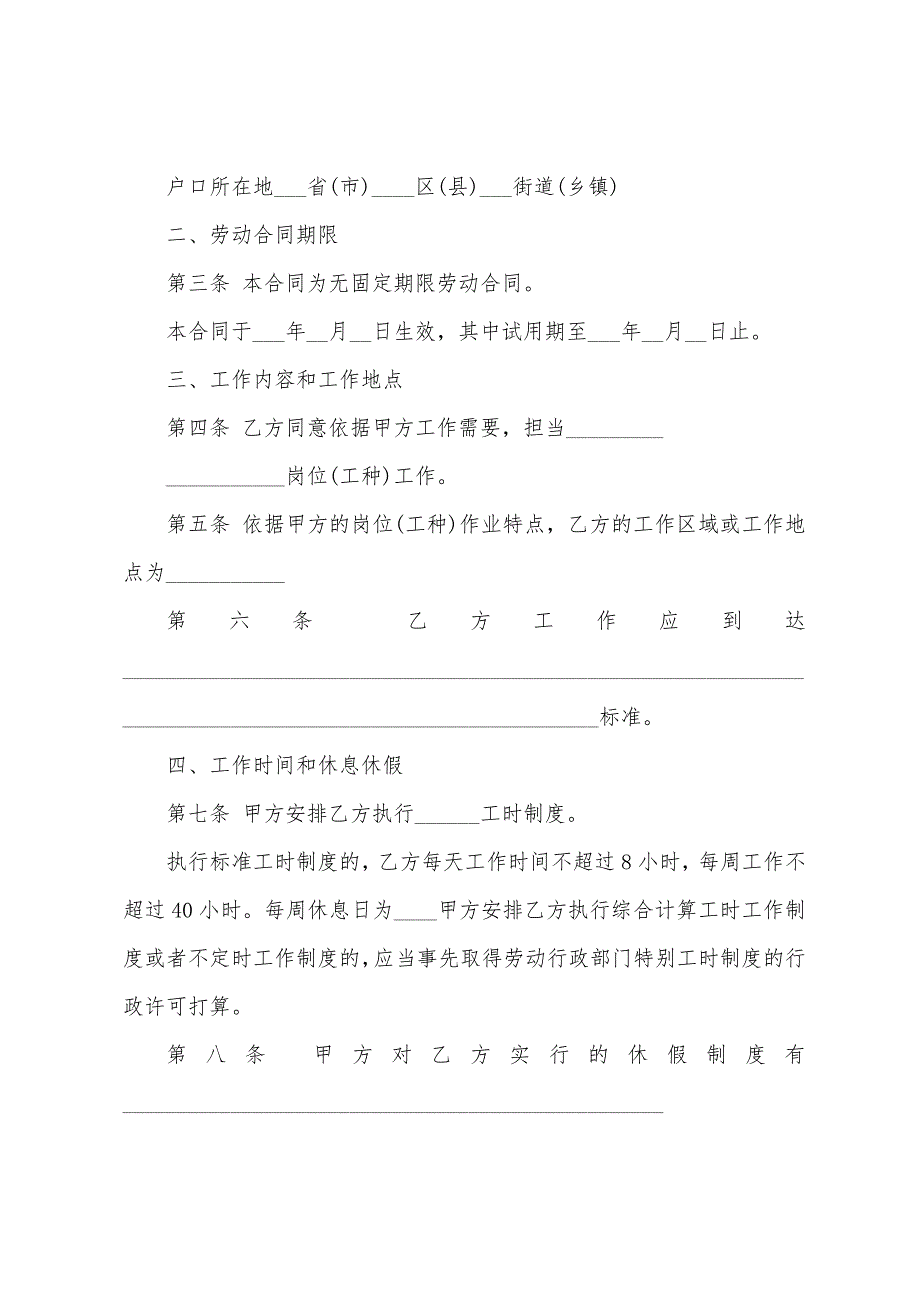 户口所在地___省(市)____区(县)___街道(乡镇)
二、劳动合同期限
第三条 本合同为无固定期限劳动合同。
本合同于___年__月__日生效，其中试用期至___年__月__日止。
三、工作内容和工作地点
第四条 乙方同意依据甲方工作需要，担当_________
___________岗位(工种)工作。
第五条 依据甲方的岗位(工种)作业特点，乙方的工作区域或工作地
点为___________
第六条 乙方工作应到达
_______________________________________________________________
____________________________________________标准。
四、工作时间和休息休假
第七条 甲方安排乙方执行______工时制度。
执行标准工时制度的，乙方每天工作时间不超过 8 小时，每周工作不
超过 40 小时。每周休息日为____甲方安排乙方执行综合计算工时工作制
度或者不定时工作制度的，应当事先取得劳动行政部门特别工时制度的行
政许可打算。
第八条 甲方对乙方实行的休假制度有
__________________________________________________